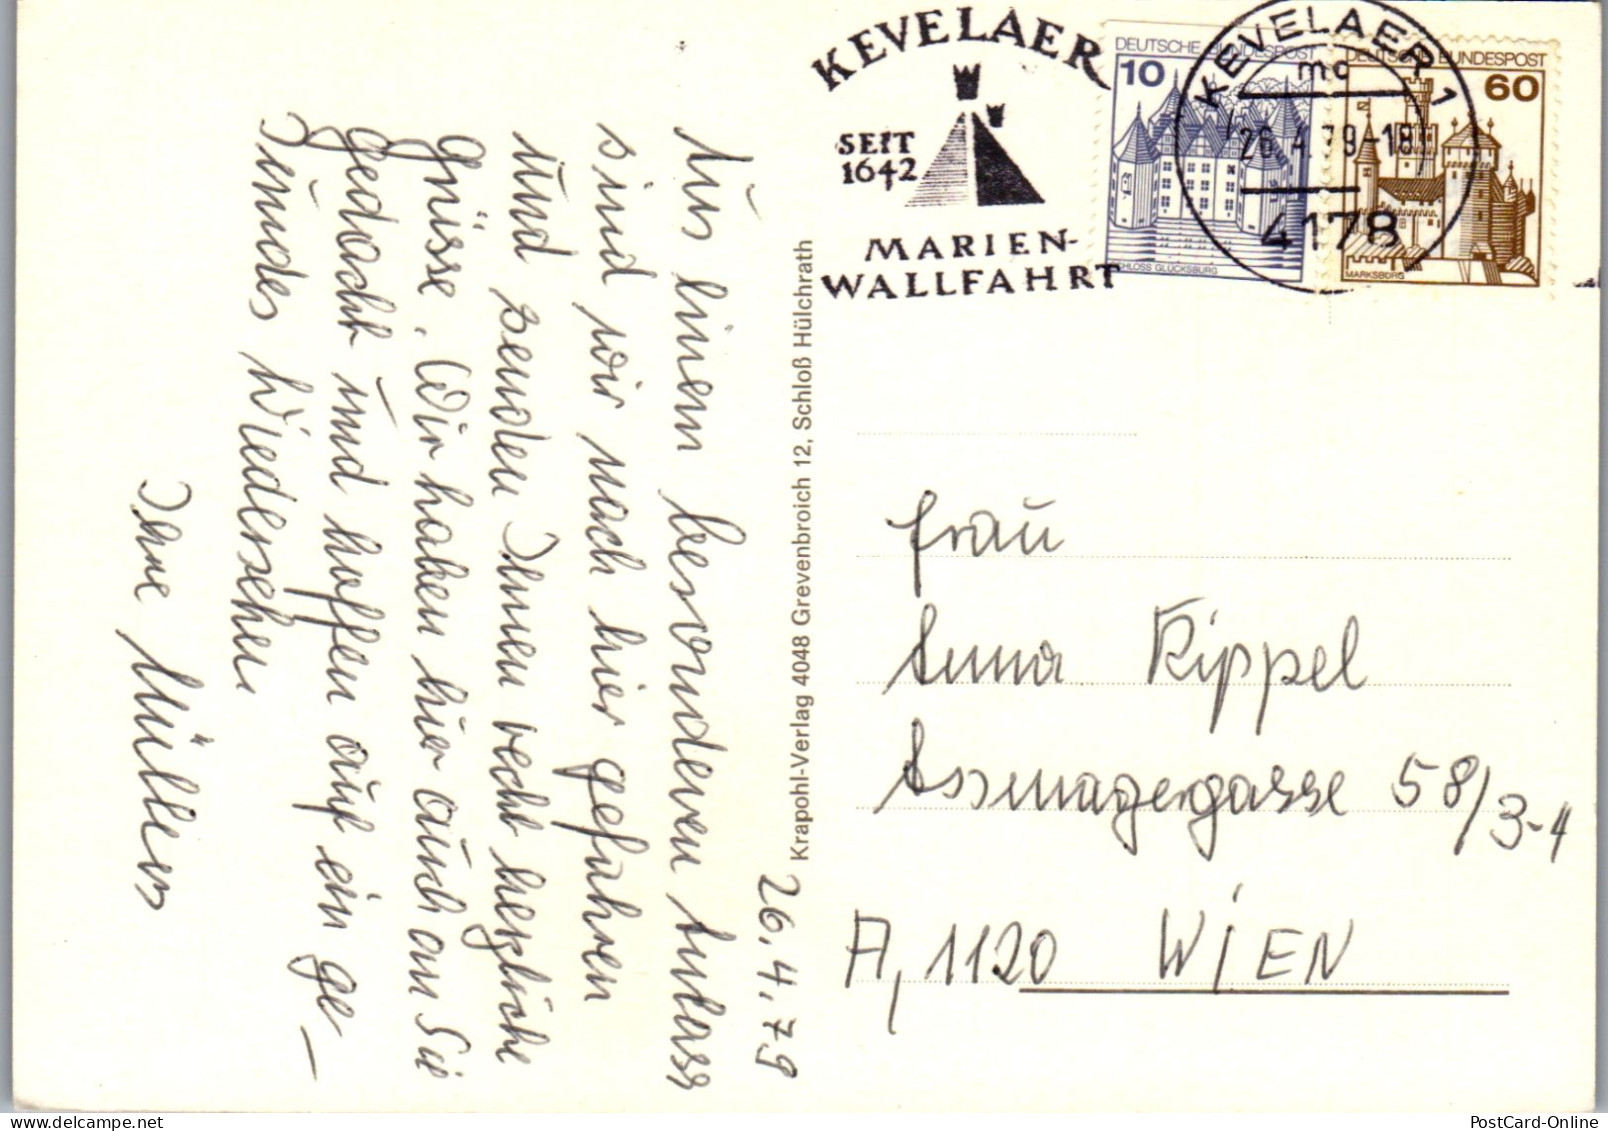 KEVELAER
SEIT
1642
MARIEN-
WALLFAHRT
DEUTSCHE BUNDESPOST
10
SCHLOSS GLÜCKSBURG
DEUTSCHE BUNDESPOST
60
MARKSBURG
KEVELAER 1
mc
26.4.79-18
4178
26.4.79
Aus einem besonderen Anlass
sind wir nach hier gefahren
und senden Ihnen recht herzliche
Grüsse. Wir haben hier auch an Sie
gedacht und hoffen auf ein ge-
sundes Wiedersehen
Ihre Müllers
Krapohl-Verlag 4048 Grevenbroich 12, Schloß Hülchrath
Frau
Anna Rippel
Assmayergasse 58/3-4
A, 1120 WIEN
PostCard-Online